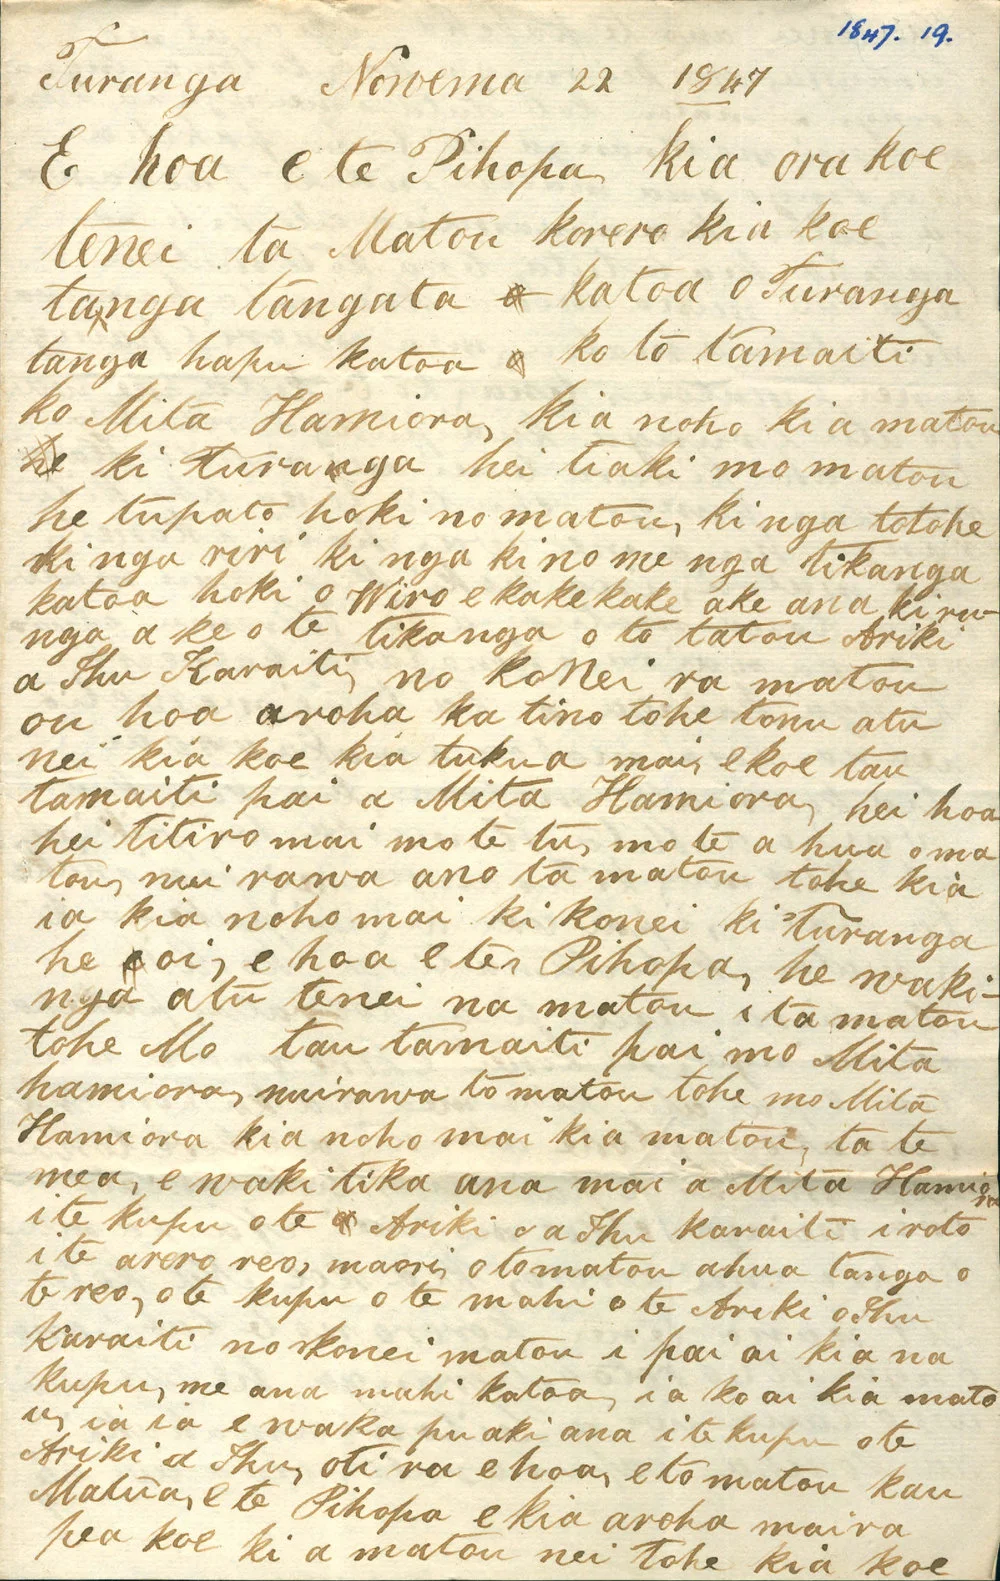 1847. 19.
Turanga Nowema 22 1847
E hoa e te Pihopa, kia ora koe
tenei ta Matou korero kia koe
tanga tangata katoa o Turanga
tanga hapu katoa ko to tamaiti
ko Mita Hamiora, kia noho kia matou
ki Turanga hei tiaki mo matou
he tupato hoki no matou, ki nga totohe
ki nga riri ki nga kino me nga tikanga
katoa hoki o Wiro e kakekake ake ana ki ru-
nga a ke o te tikanga o to tatou Ariki
a Ihu Karaiti, no koNei ra matou
ou hoa aroha ka tino tohe tonu atu
nei kia koe kia tukua mai, e koe tau
tamaiti pai a Mita Hamiora, hei hoa
hei titiro mai mo te tu, mo te a hua o ma
tou, nui rawa ano ta matou tohe kia
ia kia noho mai ki konei ki Turanga
he oi, e hoa e te, Pihopa, he waki-
nga atu tenei na matou i ta matou
tohe Mo tau tamaiti pai mo Mita
hamiora, nuirawa to matou tohe mo Mita
Hamiora kia noho mai kia matou, ta te
mea, e waki tika ana mai a Mita Hamiora
i te kupu o te Ariki o a Ihu karaiti i roto
i te arero reo, maori, o tomatou ahua tanga o
te reo, o te kupu o te mahi o te Ariki o Ihu
Karaiti no konei matou i pai ai kia na
kupu, me ana mahi katoa, ia ko ai kia mato
u, ia ia e waka puaki ana i te kupu o te
Ariki a Ihu, oti ra e hoa, e to matou kau
Matua, e te Pihopa e kia aroha mai ra
pea koe ki a matou nei tohe kia koe